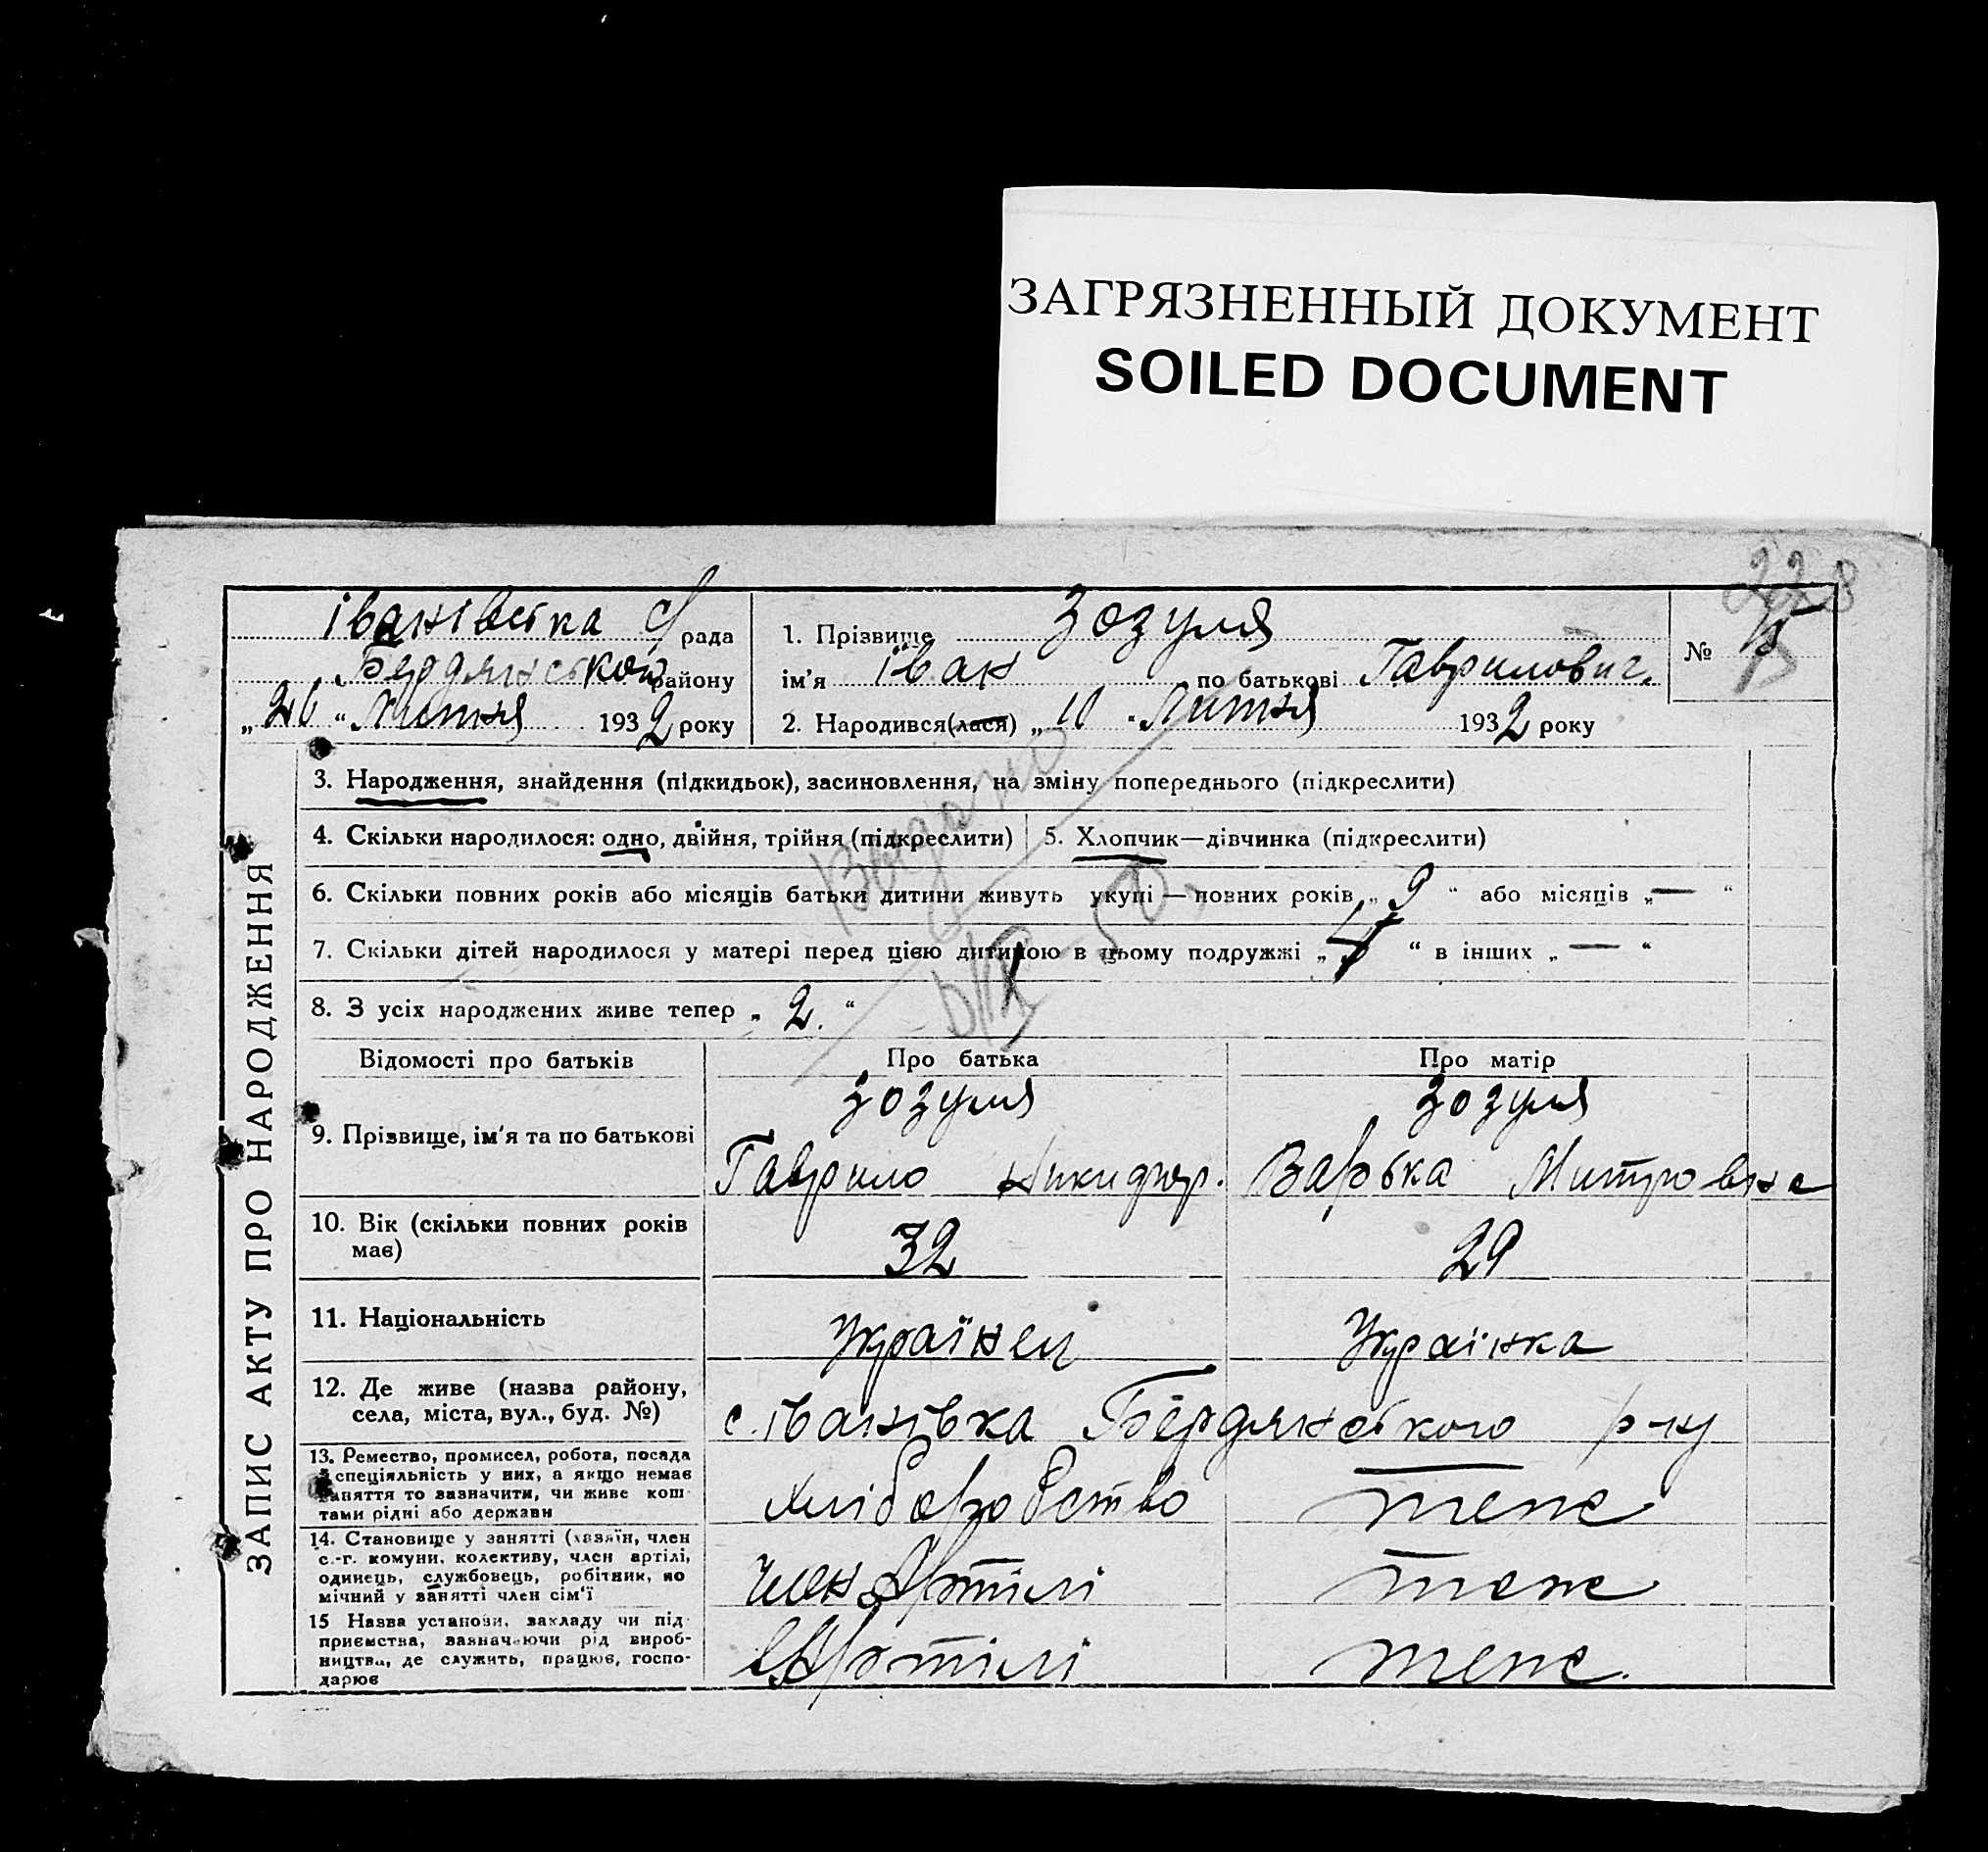 ЗАГРЯЗНЕННЫЙ ДОКУМЕНТ
SOILED DOCUMENT
228
Іванівська с/рада
Бердянського району
„26“ Лютня 1932 року
1. Прізвище Зозуля
ім'я Іван по батькові Гаврилович.
2. Народився(лася) „10“ Лютня 1932 року
№ 15
ЗАПИС АКТУ ПРО НАРОДЖЕННЯ
3. Народження, знайдення (підкидьок), засиновлення, на зміну попереднього (підкреслити)
4. Скільки народилося: одно, двійня, трійня (підкреслити)
5. Хлопчик—дівчинка (підкреслити)
6. Скільки повних років або місяців батьки дитини живуть укупі — повних років „9“ або місяців „—“
7. Скільки дітей народилося у матері перед цією дитиною в цьому подружжі „4“ в інших „—“
8. З усіх народжених живе тепер „2.“
Відомості про батьків Про батька Про матір
9. Прізвище, ім'я та по батькові
Зозуля
Гаврило Никифор.
Зозуля
Варька Митровна
10. Вік (скільки повних років має)
32
29
11. Національність
Українец
Українка
12. Де живе (назва району,
села, міста, вул., буд. №)
с. Іванівка Бердянського р-ну
13. Ремество, промисел, робота, посада
й спеціяльність у них, а якщо немає
заняття то зазначити, чи живе кош-
тами рідні або держави
хліборобство
теж
14. Становище у занятті (хазяїн, член
с.-г. комуни, колективу, член артілі,
одинець, службовець, робітник, по
мічний у занятті член сім'ї
член Артілі
теж
15 Назва установи, закладу чи під-
приємства, зазначаючи рід вироб-
ництва, де служить, працює, госпо-
дарює
Артілі
теж.